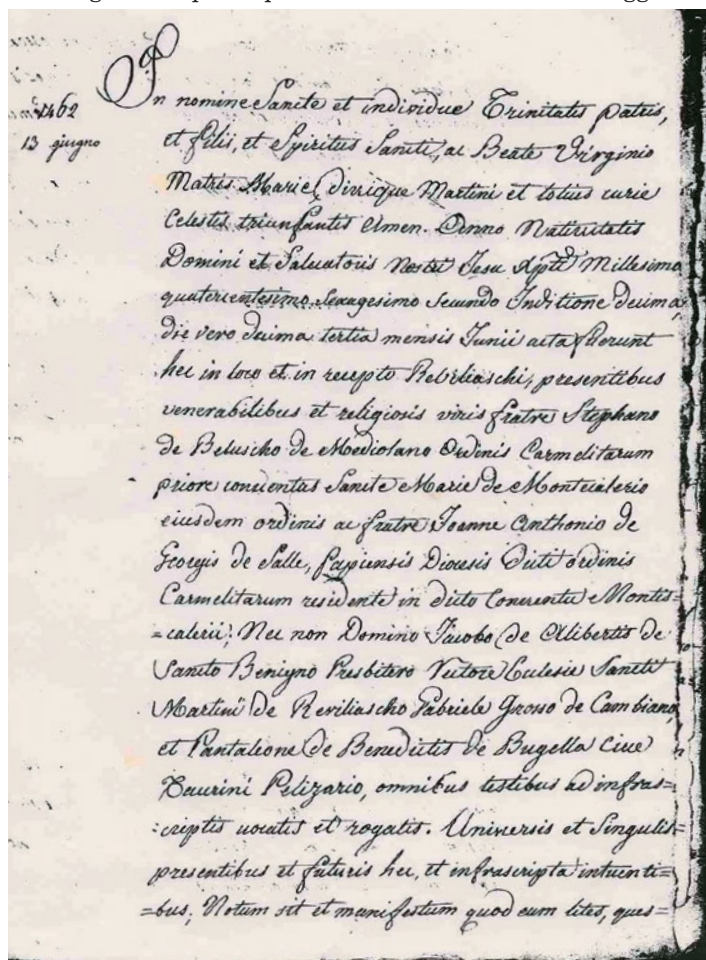 1462
13 giugno
In nomine Sancte et individue Trinitatis patris,
et filis, et Spiritus Sancti, ac Beate Virginio
Matris Marie, Divique Martini et totius curie
Celestis triunfantis Amen. Anno Nativitatis
Domini et Salvatoris Nostri Jesu Xpti Millesimo
quatercentesimo Sexagesimo Secundo Inditione decima,
die vero decima tertia mensis Junii acta fuerunt
hec in loco et in recepto Reviliaschi, presentibus
venerabilibus et religiosis viris fratre Stephano
de Beluscho de Mediolano Ordinis Carmelitarum
priore conventus Sancte Marie de Montecalerio
eiusdem ordinis ac fratre Joanne Anthonio de
Georgis de Salle, papiensis Diocesis Dicti ordinis
Carmelitarum residente in dicto Conventu Montis=
=calerii; Nec non Domino Jacobo de Alibertis de
Sancto Benigno Presbitero Rectore Ecclesie Sancti
Martini de Reviliascho Gabriele Grosso de Cambiano,
et Pantalione de Benedictis de Bugella Cive
Taurini Pelizario, omnibus testibus ad infras=
=criptis vocatis et rogatis. Universis et Singulis
presentibus et futuris hec, et infrascripta intuenti=
=bus, Notum sit et manifestum quod cum lites, ques=